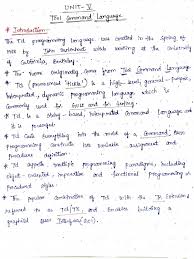 UNIT-V
Tool Command Language
* Introduction:-
* The Tcl programming language was created in the spring of
1988 by John Ousterhout while working at the University
of California, Berkeley.
* The name originally comes from Tool Command Language
* Tcl (pronounced "tickle") is a high-level, general-purpose,
interpreted, dynamic programming language which is
commonly used for
* Tcl is a string-based, Interpreted command Language and
it is powerful.
* Tcl casts everything into the mold of a command, even
programming constructs like variable assignment and
procedure definition.
* Tcl supports multiple programming paradigms, including
object-oriented, imperative and functional programming or
procedural styles
* The popular combination of Tcl with the Tk Extension
referred to as Tcl/Tk, and enables building a
graphical user Interface (GUI).